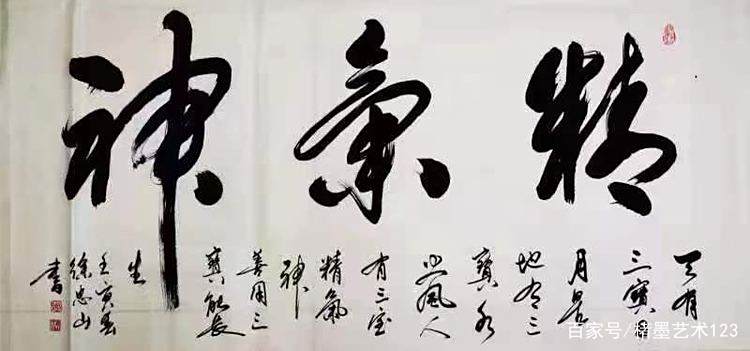 精氣神
天有
三寶
月星
地有三
寶水
火風人
有三宝
精氣
神
善用三
寶能長
生
壬寅春
徐忠山
書
百家号/精墨艺术123